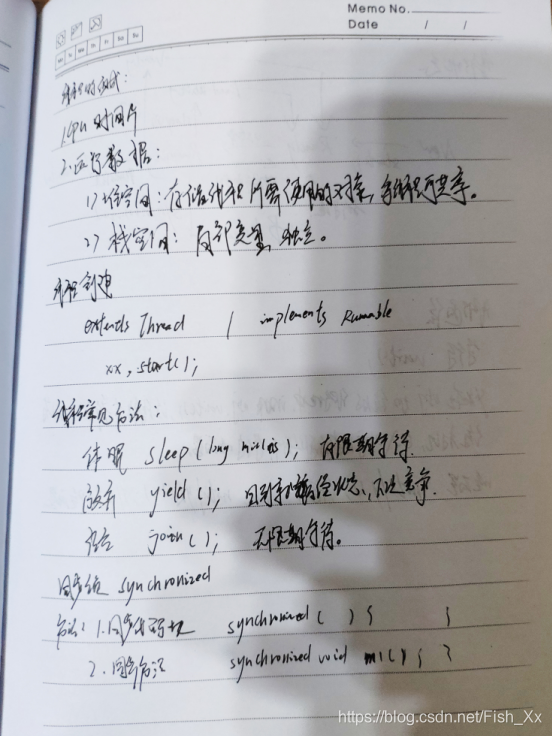 Memo No.
Date / /
Mo Tu We Th Fr Sa Su
线程的组成:
1.cpu时间片
2.运行数据:
1) 堆空间:存储线程所需使用的对象,多线程可共享。
2) 栈空间: 局部变量,独立。
线程创建
extends Thread / implements Runnable
xx.start();
线程常见方法:
休眠 sleep(long millis); 有限期等待.
放弃 yield(); 回到就绪状态,竞争.
结合 join(); 无限期等待。
同步锁 synchronized
方法: 1.同步代码块 synchronized( ){ }
2.同步方法 synchronized void m1(){ }
https://blog.csdn.net/Fish_Xx